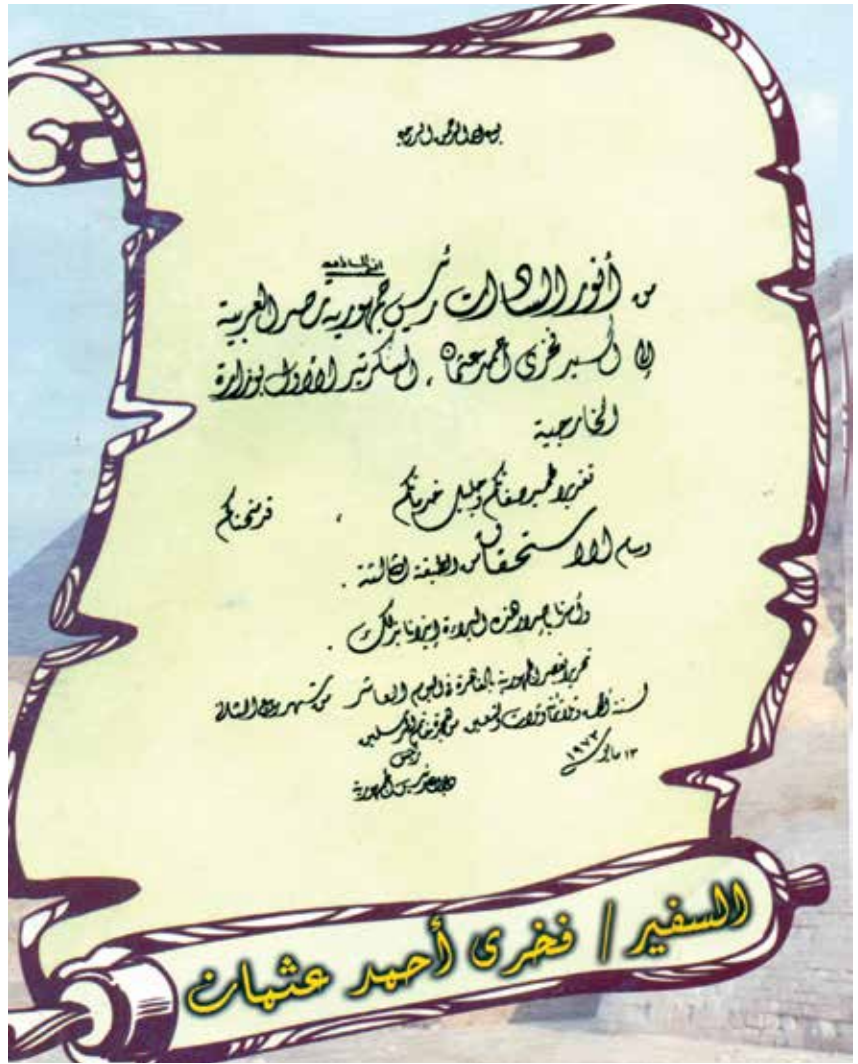 بسم الله الرحمن الرحيم
من أنور السادات رئيس جمهورية مصر العربية
إلى السيد فخرى أحمد عثمان ، السكرتير الأول بوزارة
الخارجية
تقديرا لحميد صفاتكم وجليل خدماتكم ، قد منحناكم
وسام الاستحقاق من الطبقة الثالثة .
وأمرنا بإصدار هذه البراءة إيذانا بذلك .
تحريرا بقصر الجمهورية بالقاهرة فى اليوم العاشر من شهر ربيع الثانى
لسنة ألف وثلاثمائة وثلاث وتسعين من هجرة خاتم المرسلين
١٣ مايو ١٩٧٣
رئيس
ديوان رئيس الجمهورية
السفير / فخرى أحمد عثمان